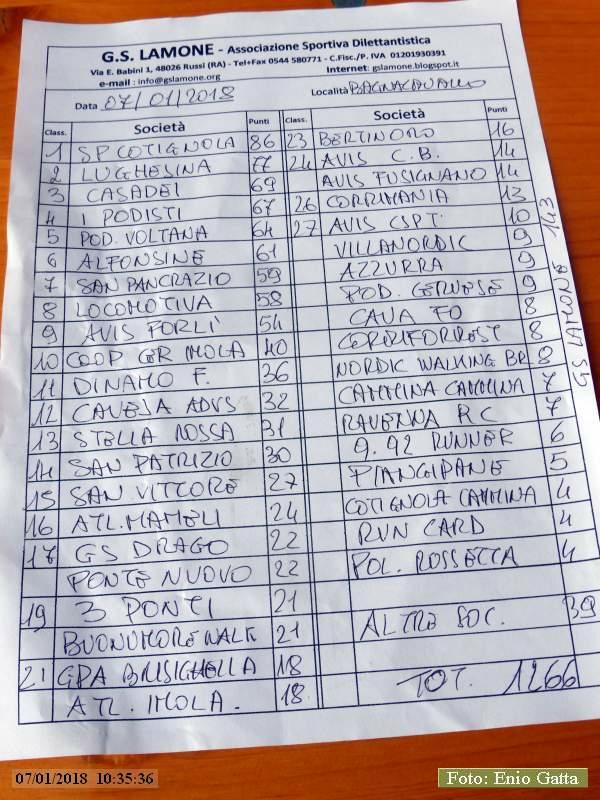 G.S. LAMONE - Associazione Sportiva Dilettantistica
Via E. Babini 1, 48026 Russi (RA) - Tel+Fax 0544 580771 - C.Fisc./P. IVA 01201930391
e-mail : info@gslamone.org Internet: gslamone.blogspot.it
Data 07/01/2018 Località BAGNACAVALLO
Class. Società Punti
1 SP COTIGNOLA 86
2 LUGHESINA 77
3 CASADEI 69
4 I PODISTI 67
5 POD. VOLTANA 64
6 ALFONSINE 61
7 SAN PANCRAZIO 59
8 LOCOMOTIVA 58
9 AVIS FORLÌ 54
10 COOP CER IMOLA 40
11 DINAMO F. 36
12 CAVEJA ADVS 32
13 STELLA ROSSA 31
14 SAN PATRIZIO 30
15 SAN VITTORE 27
16 ATL. MAMELI 24
17 GS DRAGO 22
PONTE NUOVO 22
19 3 PONTI 21
BUONUMORE WALK 21
21 GPA BRISIGHELLA 18
ATL. IMOLA. 18
Class. Società Punti
23 BERTINORO 16
24 AVIS C.B. 14
AVIS FUSIGNANO 14
26 CORRIMANIA 13
27 AVIS CSPT. 10
VILLANORDIC 9
AZZURRA 9
POD. CERVESE 9
CAVA FO 8
CORRIFORREST 8
NORDIC WALKING BR 8
CAMMINA CAMMINA 7
RAVENNA RC 7
9.92 RUNNER 6
PIANGIPANE 5
COTIGNOLA CAMMINA 4
RUN CARD 4
POL. ROSSETTA 4
ALTRE SOC. 39
TOT. 1266
GS LAMONE 143
07/01/2018 10:35:36
Foto: Enio Gatta